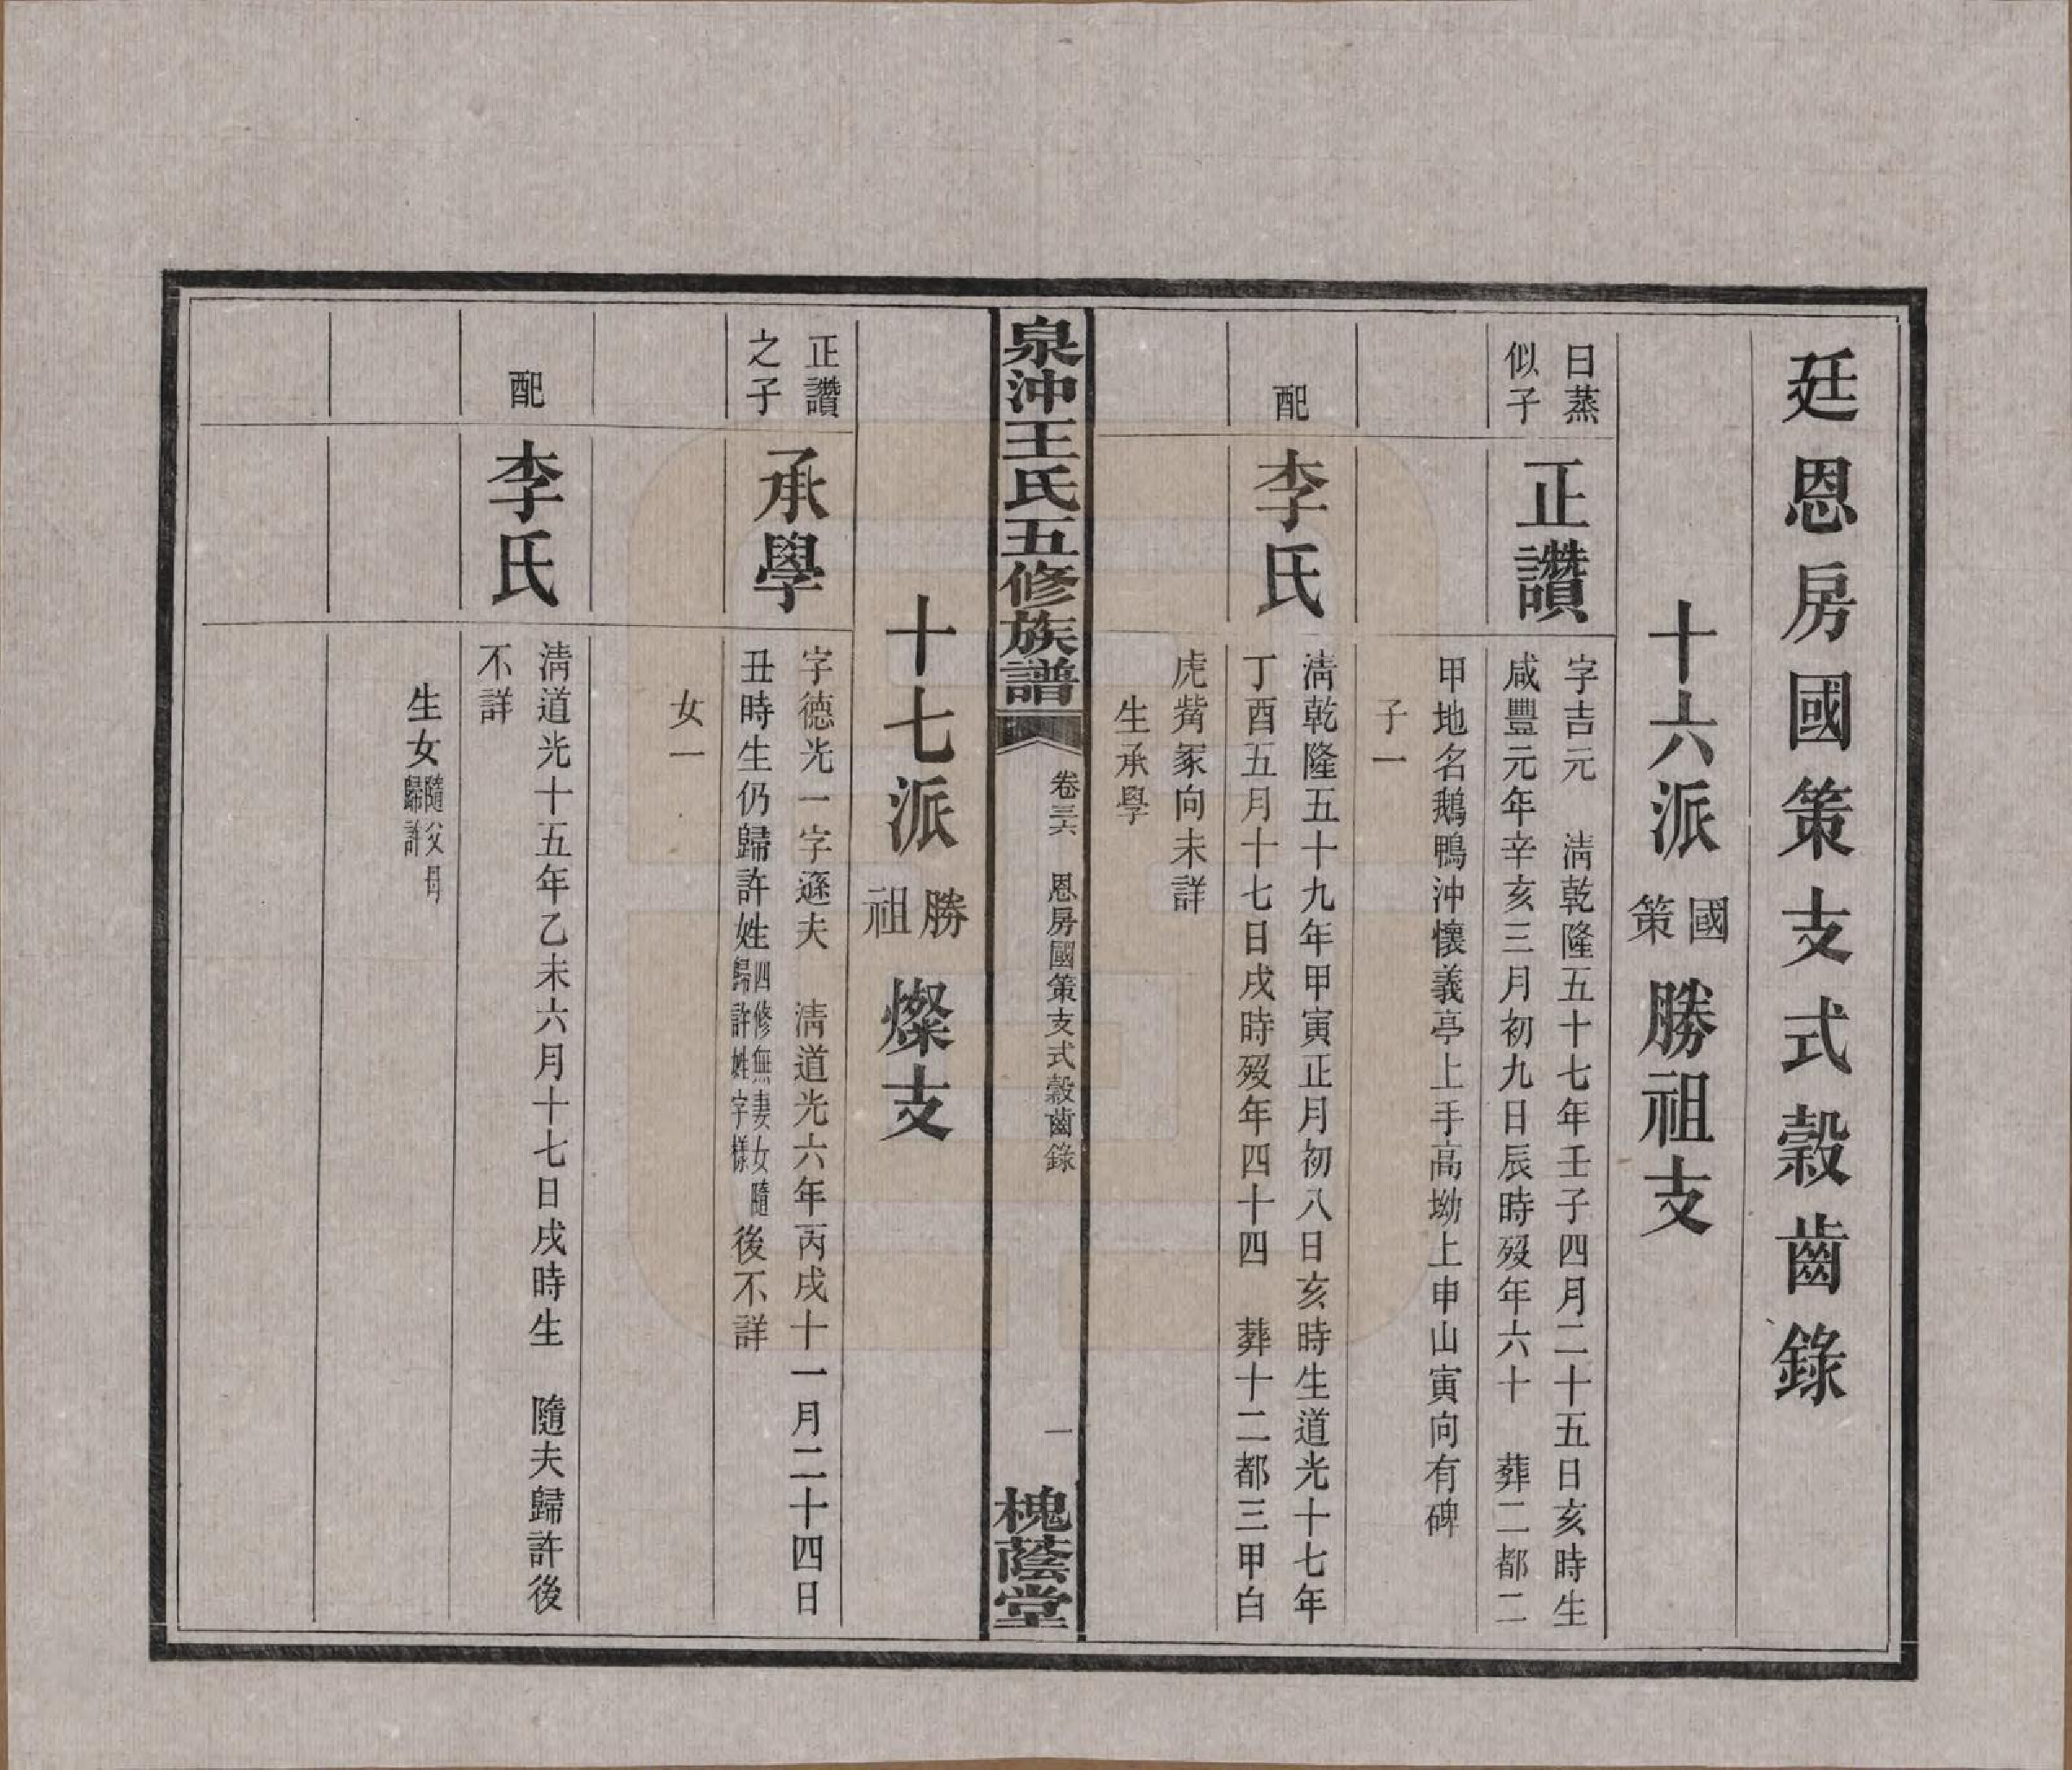 廷恩房國策支式穀齒錄
十六派 國策 勝祖支
日蒸
似子
正讚
字吉元 清乾隆五十七年壬子四月二十五日亥時生
咸豐元年辛亥三月初九日辰時歿年六十 葬二都二
甲地名鵝鴨沖懷義亭上手高坳上申山寅向有碑
子一
配
李氏
清乾隆五十九年甲寅正月初八日亥時生道光十七年
丁酉五月十七日戌時歿年四十四 葬十二都三甲白
虎嘴冢向未詳
生承學
泉沖王氏五修族譜
卷三六 恩房國策支式穀齒錄
一
槐蔭堂
十七派 勝祖 燦支
正讚
之子
承學
字德光一字遜夫 清道光六年丙戌十一月二十四日
丑時生仍歸許姓四修無妻女隨歸許姓字樣後不詳
女一
配
李氏
清道光十五年乙未六月十七日戌時生 隨夫歸許後
不詳
生女隨父母歸許